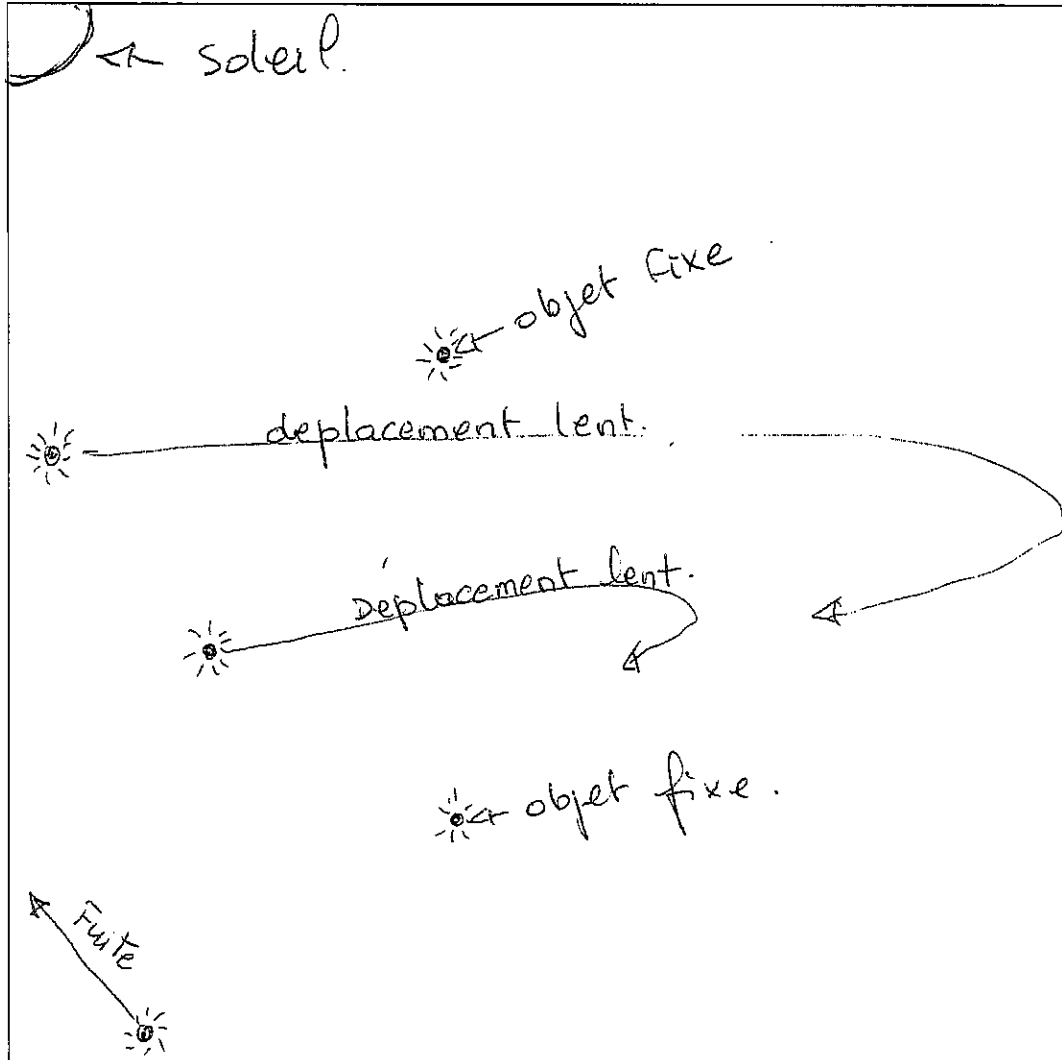 soleil.
objet fixe
deplacement lent.
Déplacement lent.
objet fixe.
Fuite